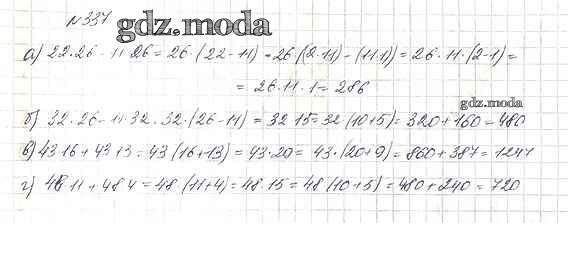 №337
gdz.moda
а) 22·26 - 11·26 = 26·(22-11) = 26(2·11) - (11·1)) = 26·11·(2-1) =
= 26·11·1 = 286
gdz.moda
б) 32·26 - 11·32 = 32·(26-11) = 32·15 = 32·(10+5) = 320+160 = 480
в) 43·16 + 43·13 = 43(16+13) = 43·29 = 43·(20+9) = 860+387 = 1247
г) 48·11 + 48·4 = 48·(11+4) = 48·15 = 48(10+5) = 480+240 = 720